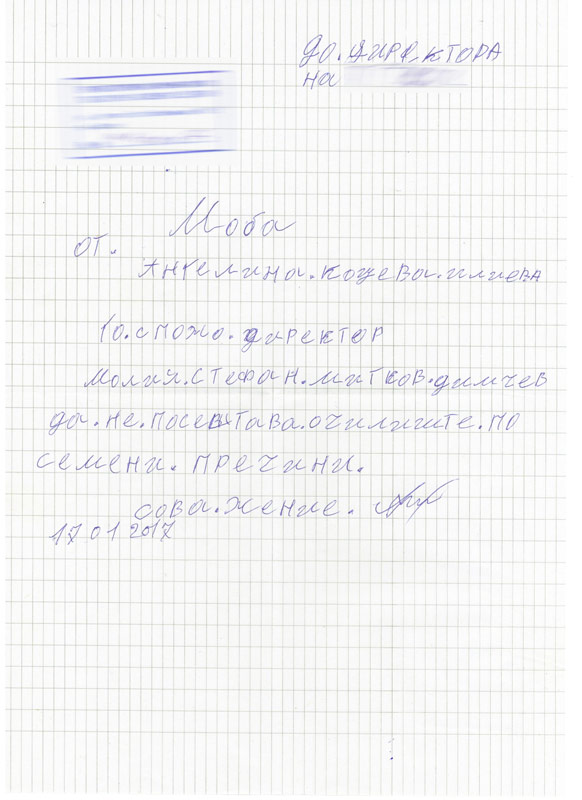 до.ДИРЕКТОРА
на
Моба
от.
Ангелина.Кощева.илиева
Го.спожо.директор
Молия.Стефан.митков.димчев
да.не.посевтава.очилиште.по
семени.пречини.
сова.жение.
17 01 2017